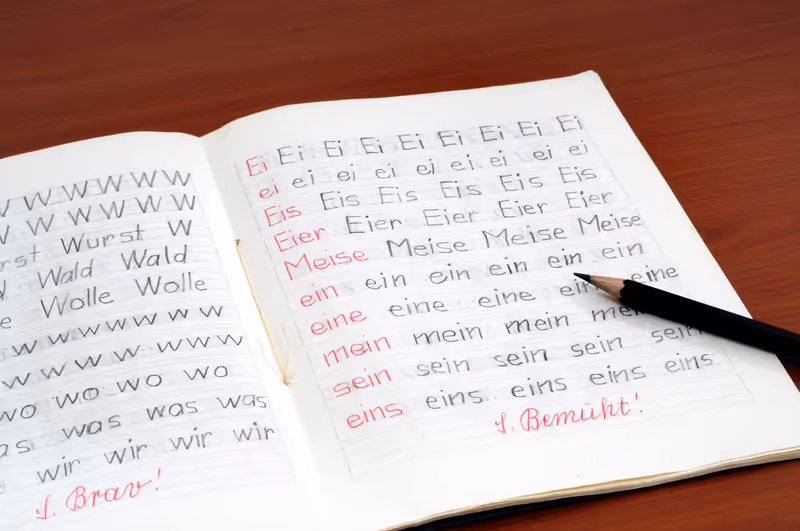 W W W W W W
W W W W W W
Wurst W
Wald Wald
Wolle Wolle
w w w w w w w w
w w w w w w w w
wo wo wo wo
was was was
wir wir wir wir
1. Brav!
Ei Ei Ei Ei Ei Ei Ei Ei Ei
ei ei ei ei ei ei ei ei ei
Eis Eis Eis Eis Eis Eis
Eier Eier Eier Eier Eier
Meise Meise Meise Meise
ein ein ein ein ein ein
eine eine eine eine
mein mein mein
sein sein sein sein sein
eins eins eins eins eins
1. Bemüht!